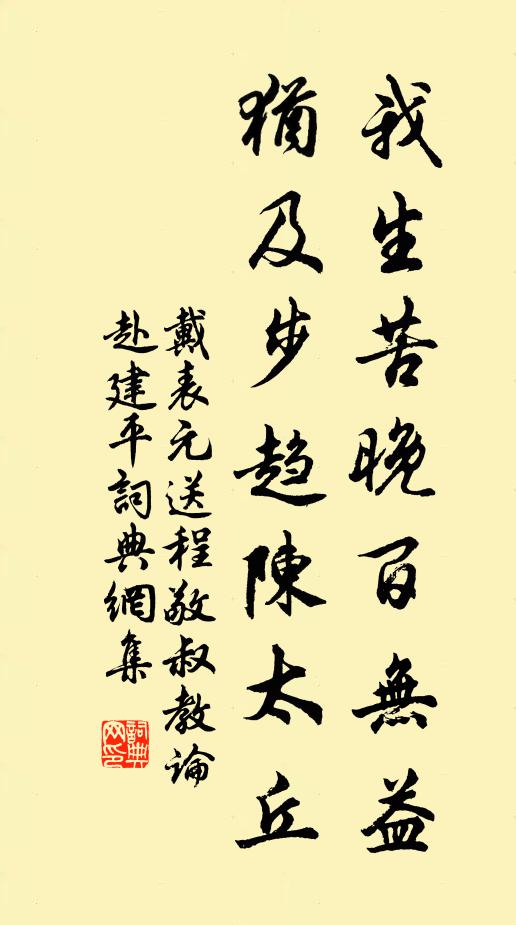 我生苦晚百無益
猶及步趨陳太丘
戴表元送程敬叔教論
赴建平詞典網集
詞典
网印